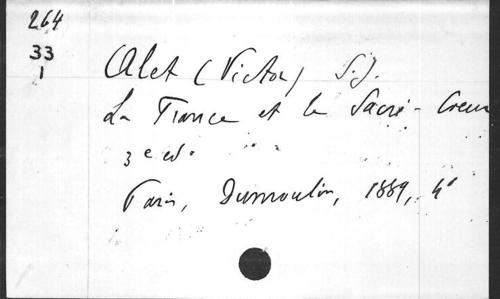 264
33
1
Alet (Victor) S.J.
La France et le Sacré-Coeur
3e ed.
Paris, Dumoulin, 1889, 4°